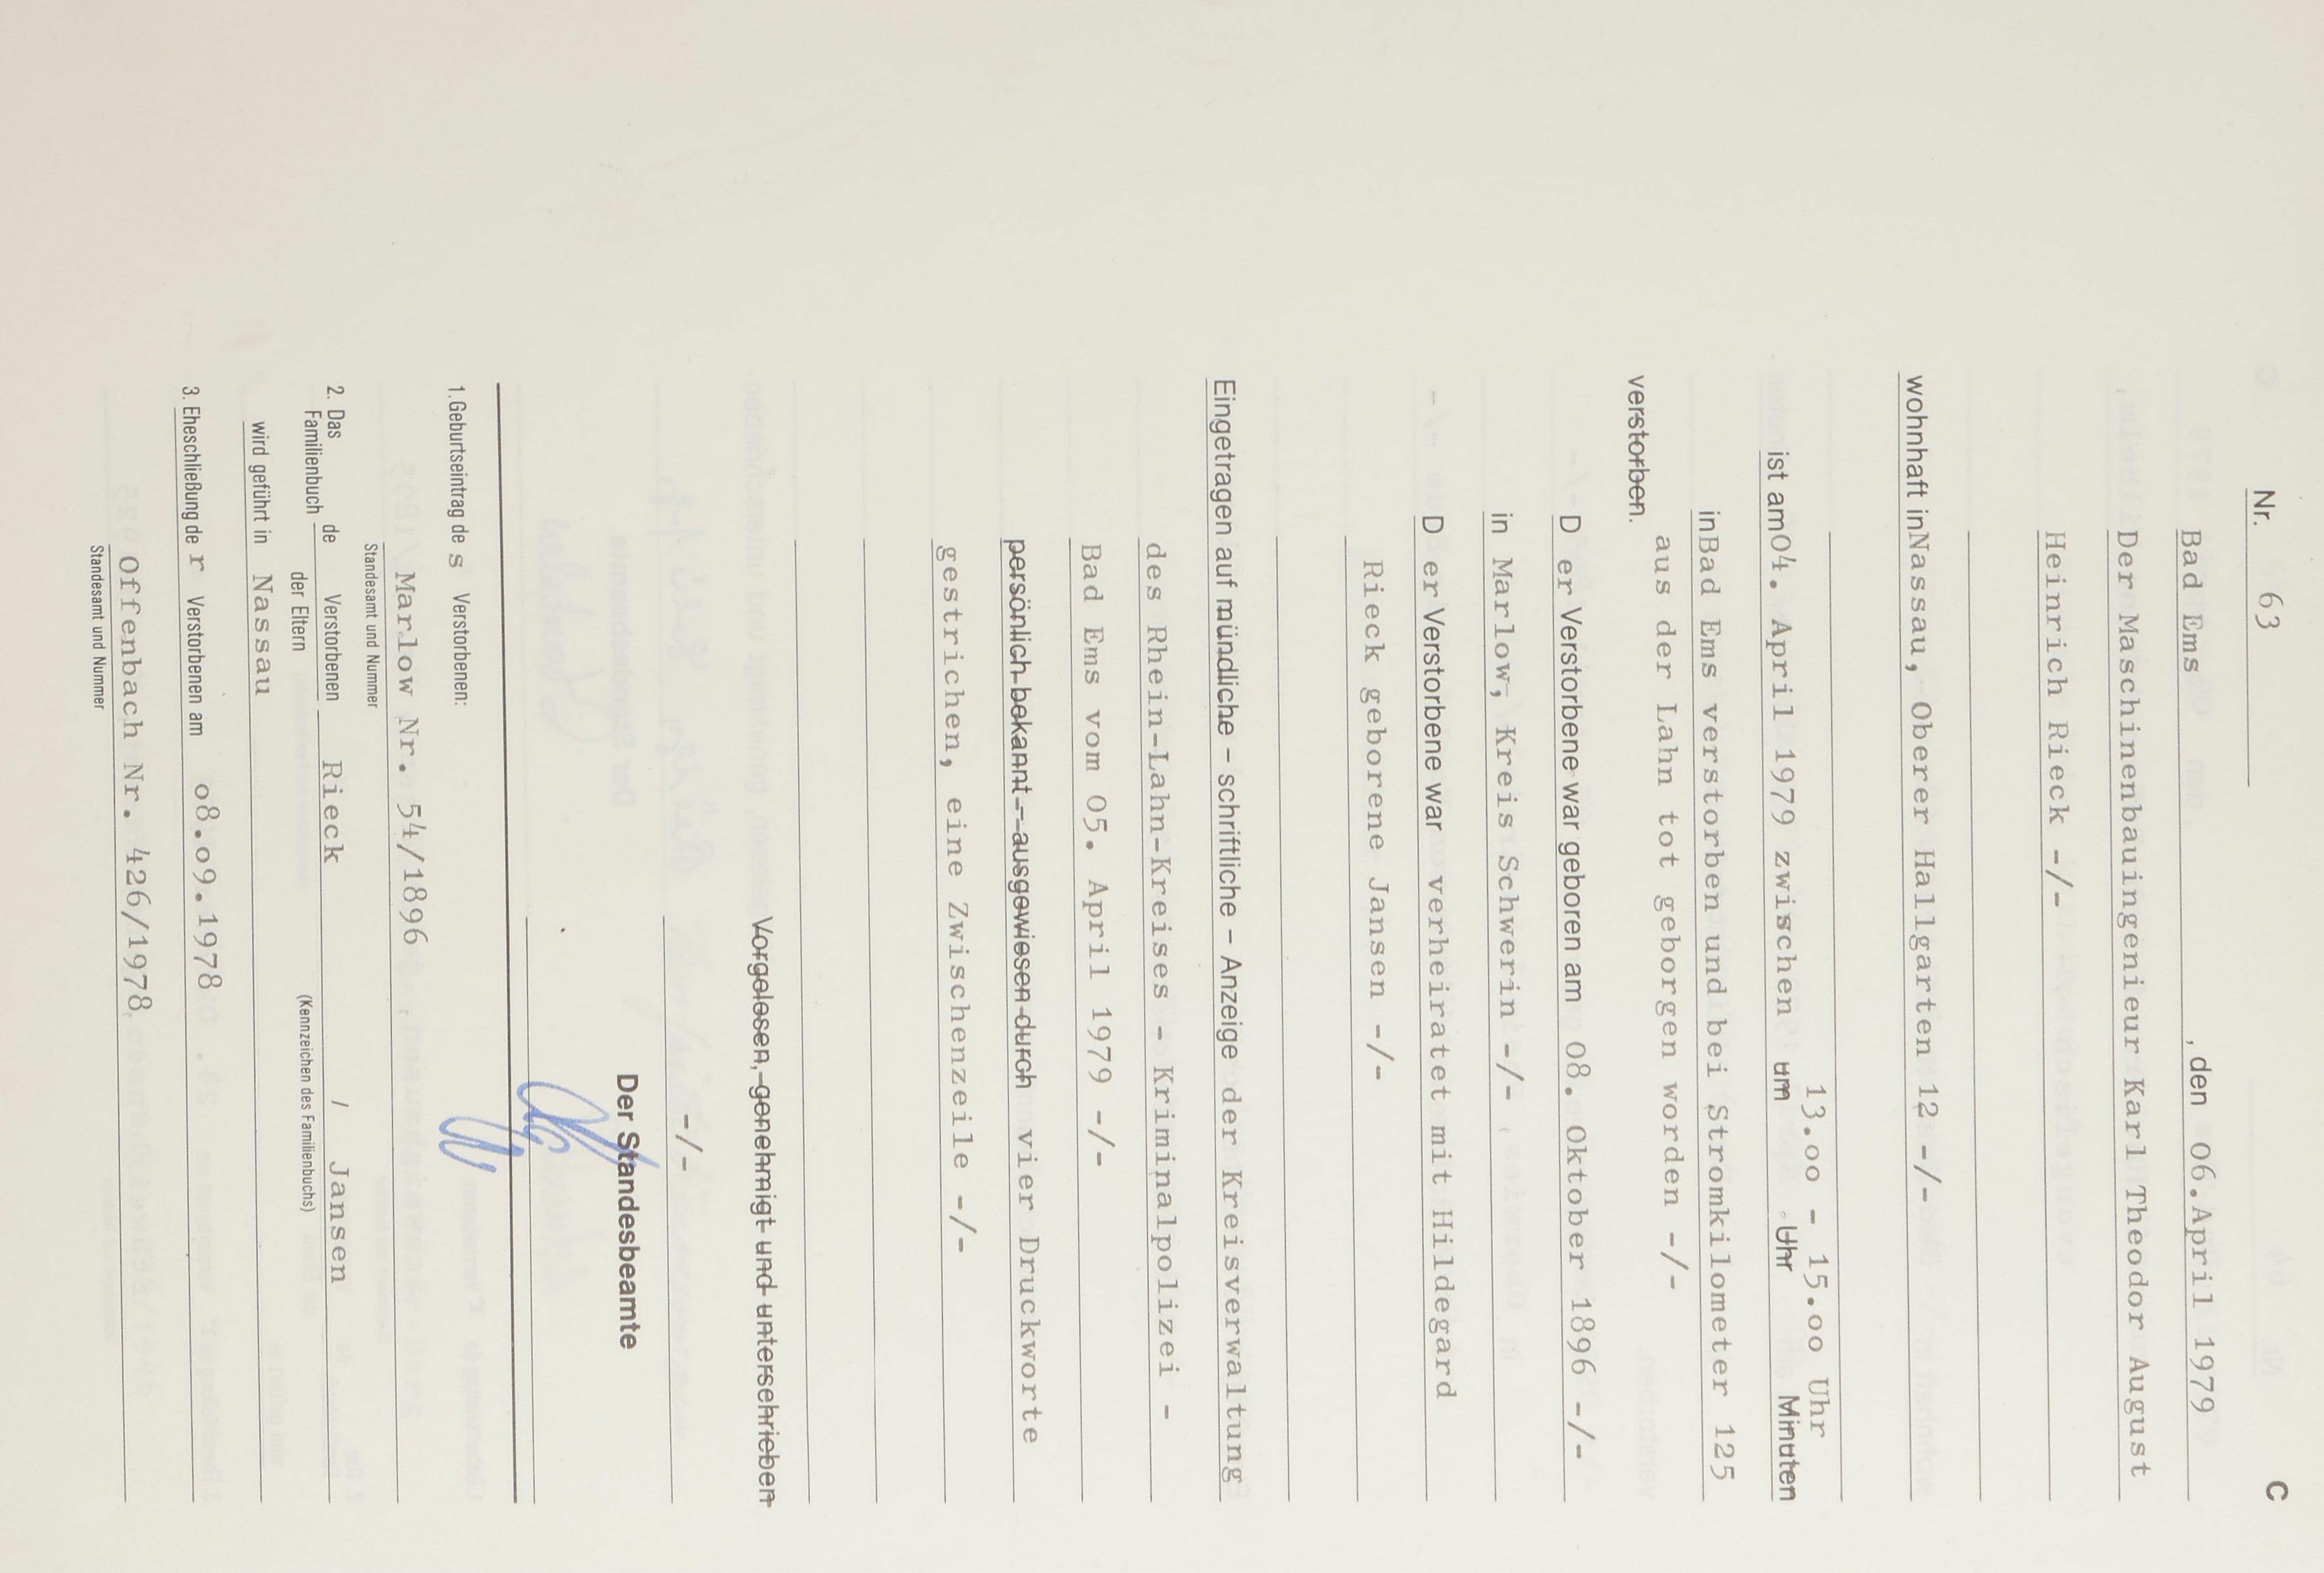 C
Nr. 63
Bad Ems , den 06.April 1979
Der Maschinenbauingenieur Karl Theodor August
Heinrich Rieck -/-
wohnhaft in Nassau, Oberer Hallgarten 12 -/-
13.oo - 15.oo Uhr
ist am 04. April 1979 zwischen um Uhr Minuten
in Bad Ems verstorben und bei Stromkilometer 125
aus der Lahn tot geborgen worden -/-
verstorben.
D er Verstorbene war geboren am 08. Oktober 1896 -/-
in Marlow, Kreis Schwerin -/-
D er Verstorbene war verheiratet mit Hildegard
Rieck geborene Jansen -/-
Eingetragen auf mündliche – schriftliche – Anzeige der Kreisverwaltung
des Rhein-Lahn-Kreises - Kriminalpolizei -
Bad Ems vom 05. April 1979 -/-
persönlich bekannt – ausgewiesen durch vier Druckworte
gestrichen, eine Zwischenzeile -/-
Vorgelesen, genehmigt und unterschrieben
-/-
Der Standesbeamte
1. Geburtseintrag de s Verstorbenen:
Marlow Nr. 54/1896
Standesamt und Nummer
2. Das Familienbuch de Verstorbenen Rieck / Jansen
der Eltern (Kennzeichen des Familienbuchs)
wird geführt in Nassau
3. Eheschließung de r Verstorbenen am o8.o9.1978
Offenbach Nr. 426/1978
Standesamt und Nummer